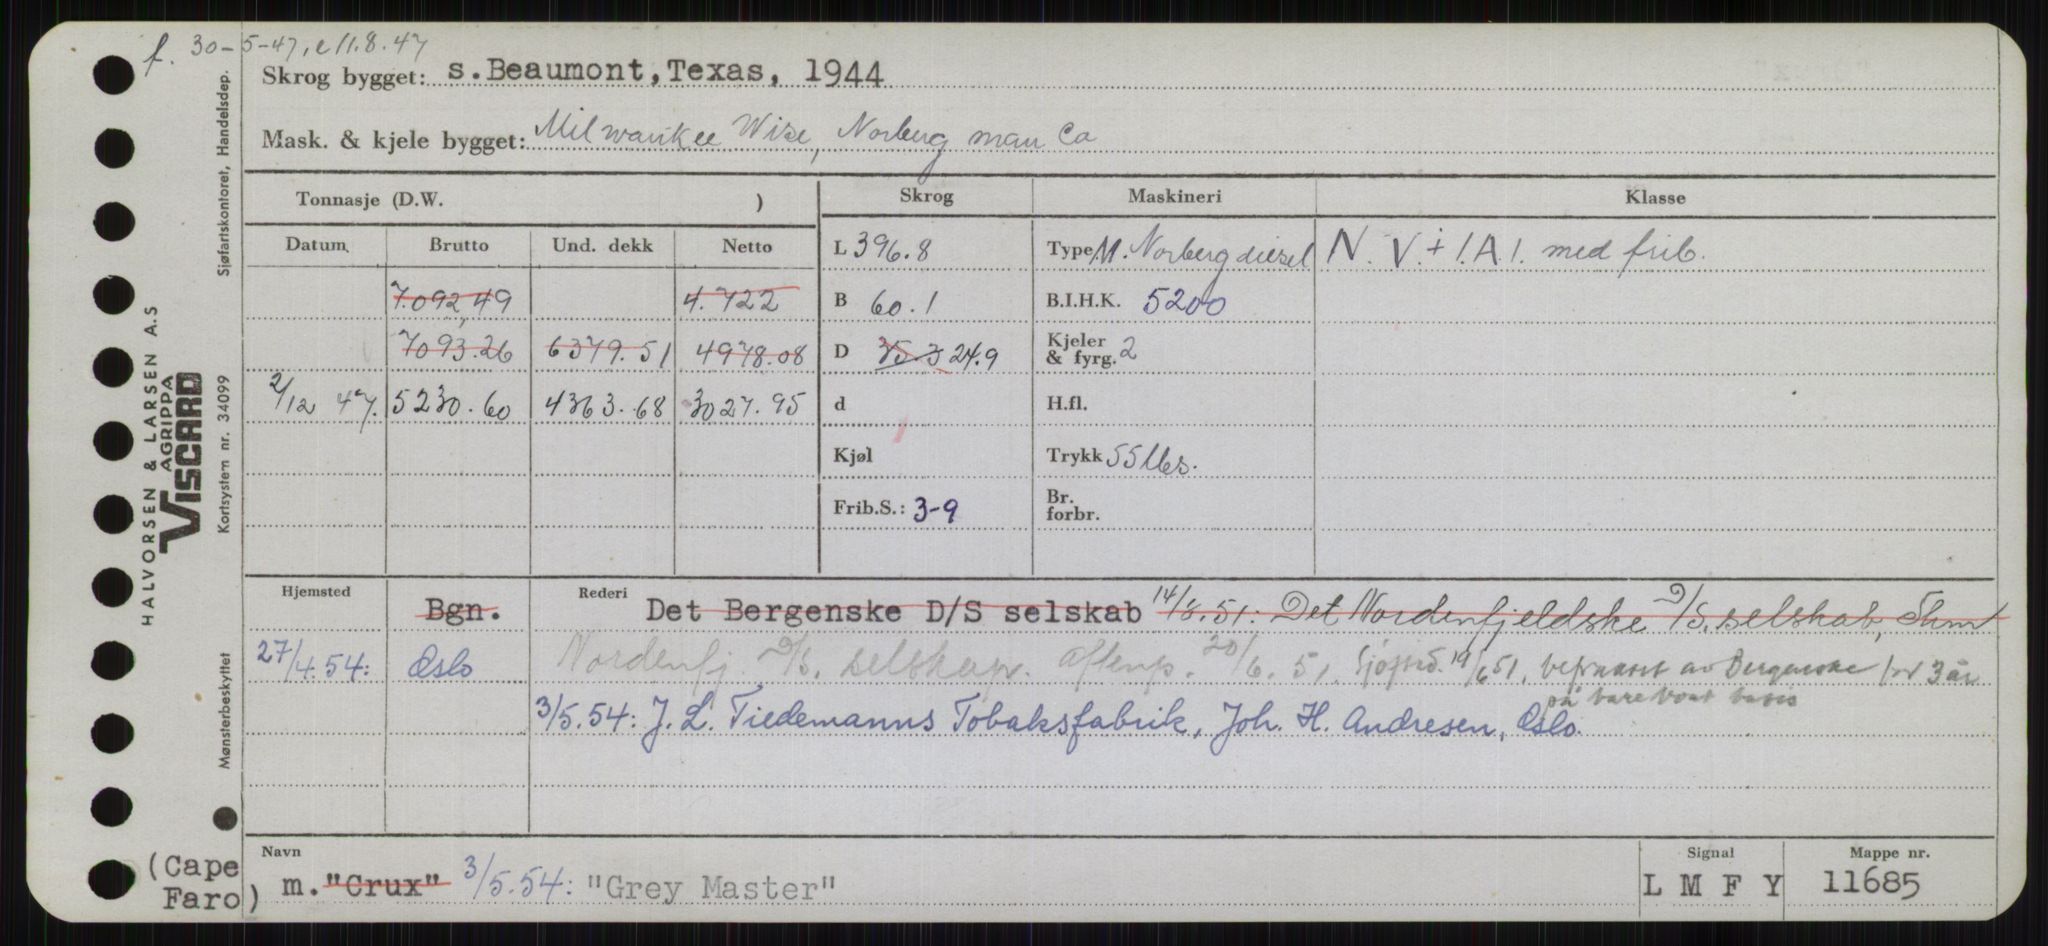 f. 30-5-47, e 11.8.47
Skrog bygget: s.Beaumont,Texas, 1944
Mask. & kjele bygget: Milwaukee Wise, Norberg man Co
Tonnasje (D.W. )
Skrog
Maskineri
Klasse
Datum Brutto Und. dekk Netto
L 396.8
Type M. Norberg diesel
N. V. + 1.A.1. med frib.
7.092,49 4.722
B 60.1
B.I.H.K. 5200
7093.26 6379.51 4978.08
D 35.3 24.9
Kjeler & fyrg. 2
2/12 47. 5230.60 4363.68 3027.95
d
H.fl.
Kjøl
Trykk 55 lbs.
Frib.S.: 3-9
Br. forbr.
Hjemsted Bgn. Rederi Det Bergenske D/S selskab 14/8.51: Det Nordenfjeldske D/S. selskab, Thmt
27/4.54: Oslo Nordenfj. D/S. selskap. Aftenp. 20/6.51. Sjøftid. 19/6 51. befraktet av Bergenske for 3 år
på bareboat basis
3/5.54: J. L. Tiedemanns Tobaksfabrik, Joh. H. Andresen, Oslo.
Navn
Signal
Mappe nr.
(Cape Faro) m. "Crux" 3/5.54: "Grey Master"
L M F Y
11685
HALVORSEN & LARSEN A.S
AGRIPPA
VISCARD
Mønsterbeskyttet Kortsystem nr. 34099 Sjøfartskontoret, Handelsdep.